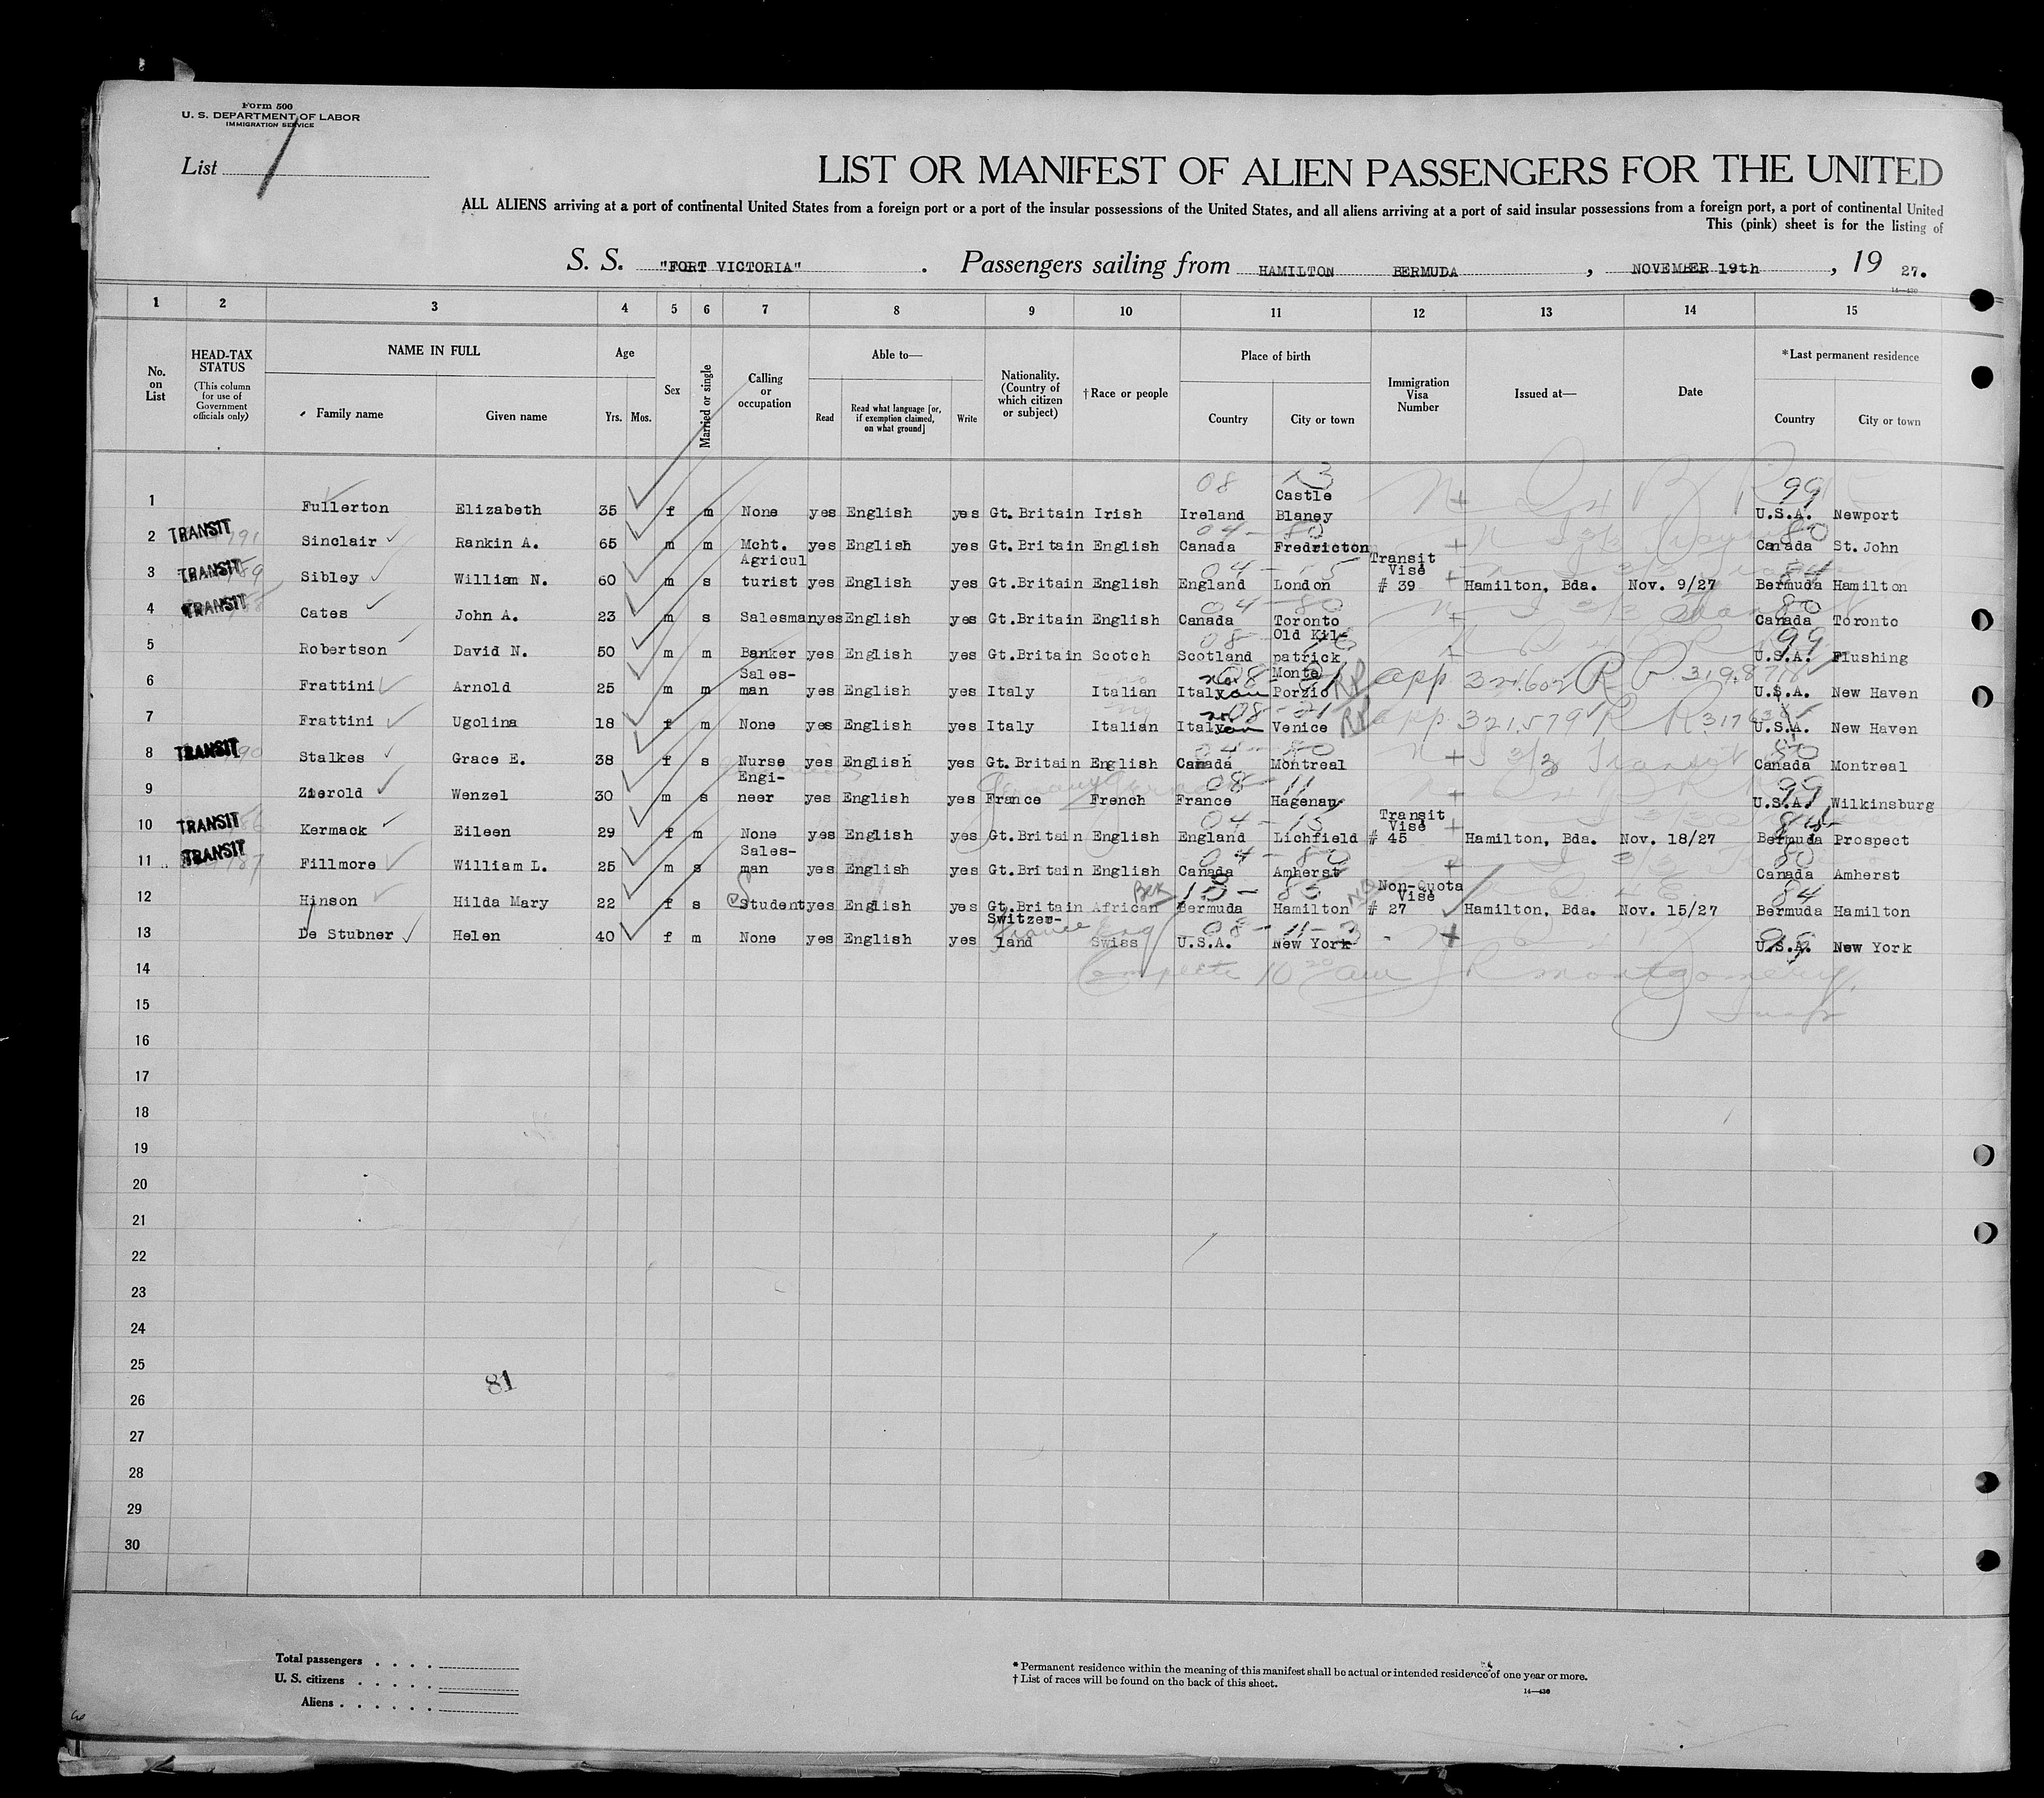 Form 500
U. S. DEPARTMENT OF LABOR
IMMIGRATION SERVICE
List 1
LIST OR MANIFEST OF ALIEN PASSENGERS FOR THE UNITED
ALL ALIENS arriving at a port of continental United States from a foreign port or a port of the insular possessions of the United States, and all aliens arriving at a port of said insular possessions from a foreign port, a port of continental United
This (pink) sheet is for the listing of
S. S. "FORT VICTORIA" . Passengers sailing from HAMILTON BERMUDA , NOVEMBER 19th , 19 27.
14—430
1 2 3 4 5 6 7 8 9 10 11 12 13 14 15
No. on List
HEAD-TAX STATUS (This column for use of Government officials only)
NAME IN FULL Family name Given name
Age Yrs. Mos.
Sex
Married or single
Calling or occupation
Able to— Read Read what language [or, if exemption claimed, on what ground] Write
Nationality. (Country of which citizen or subject)
†Race or people
Place of birth Country City or town
Immigration Visa Number
Issued at—
Date
*Last permanent residence Country City or town
1 Fullerton Elizabeth 35 f m None yes English yes Gt. Britain Irish 08 Ireland Castle Blaney 99 U.S.A. Newport
2 TRANSIT 191 Sinclair Rankin A. 65 m m Mcht. yes English yes Gt. Britain English 04-80 Canada Fredricton 80 Canada St. John
3 TRANSIT Sibley William N. 60 m s Agricul turist yes English yes Gt.Britain English 04 England London Transit Visé # 39 Hamilton, Bda. Nov. 9/27 84 Bermuda Hamilton
4 TRANSIT Cates John A. 23 m s Salesman yes English yes Gt.Britain English 04-80 Canada Toronto 80 Canada Toronto
5 Robertson David N. 50 m m Banker yes English yes Gt.Britain Scotch 08 Scotland Old Kil- patrick 99 U.S.A. Flushing
6 Frattini Arnold 25 m m Sales- man yes English yes Italy Italian Italy Monte Porzio RP app. U.S.A. New Haven
7 Frattini Ugolina 18 f m None yes English yes Italy Italian 08-21 Italy Venice app. 321579 U.S.A. New Haven
8 TRANSIT 90 Stalkes Grace E. 38 f s Nurse yes English yes Gt. Britain English Canada Montreal 3/3 Transit 80 Canada Montreal
9 Zierold Wenzel 30 m s Engi- neer yes English yes France French 08-11 France Hagenau 99 U.S.A. Wilkinsburg
10 TRANSIT Kermack Eileen 29 f m None yes English yes Gt.Britain English 04-15 England Lichfield Transit Visé # 45 Hamilton, Bda. Nov. 18/27 Bermuda Prospect
11 TRANSIT 187 Fillmore William L. 25 m s Sales- man yes English yes Gt.Britain English 04-80 Canada Amherst 80 Canada Amherst
12 Hinson Hilda Mary 22 f s Student yes English yes Gt.Britain African Bermuda Hamilton Non-Quota Visé # 27 Hamilton, Bda. Nov. 15/27 84 Bermuda Hamilton
13 De Stubner Helen 40 f m None yes English yes Switzer- land France Swiss Eng 08-11-3 U.S.A. New York U.S.A. New York
14 Complete 10 20 am J R Montgomery
15 Insp
16
17
18
19
20
21
22
23
24
25
81
26
27
28
29
30
Total passengers . . . .
U. S. citizens . . . . .
Aliens . . . . . .
*Permanent residence within the meaning of this manifest shall be actual or intended residence of one year or more.
†List of races will be found on the back of this sheet.
14—430